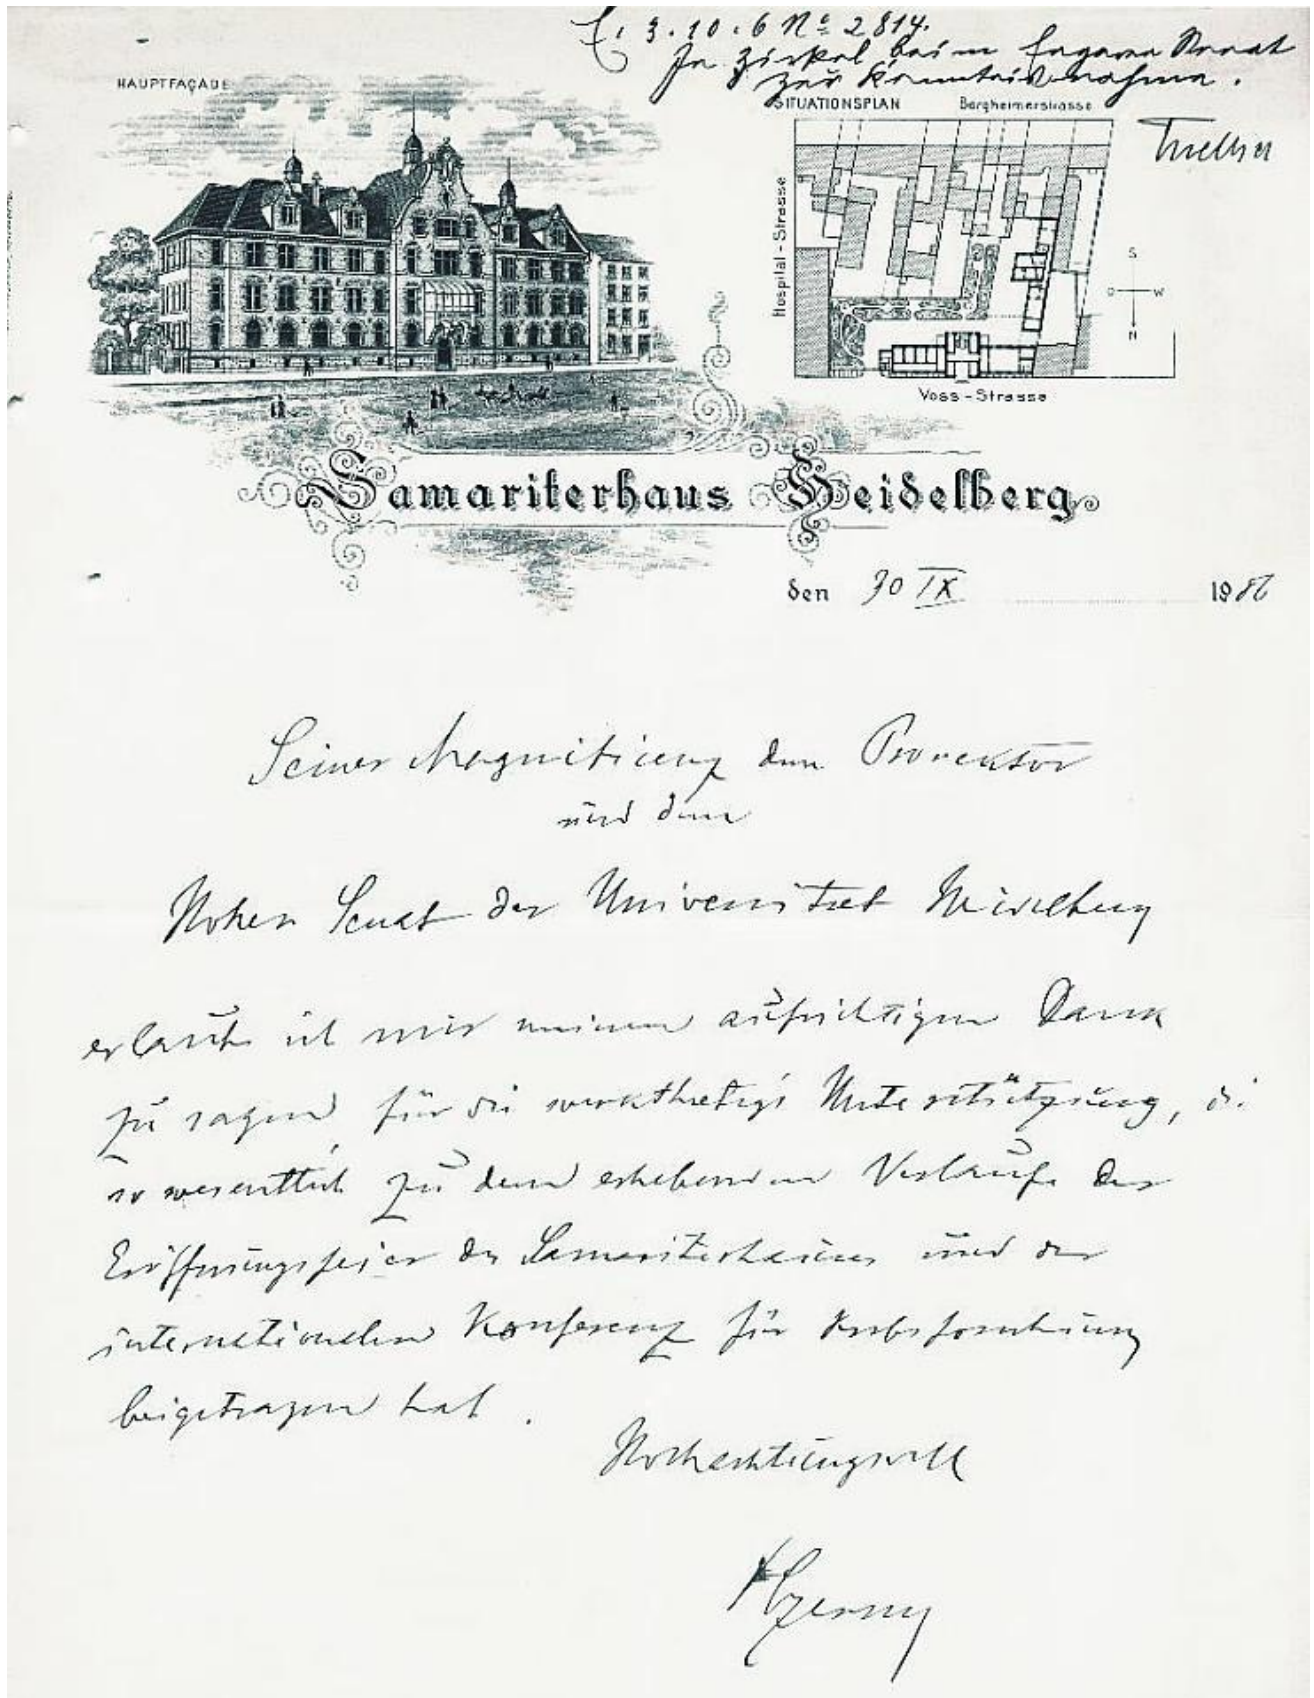 3.10.6 Nº 2814.
In Zirkel beim Engeren Senat
zur Kenntnisnahme.
HAUPTFAÇADE
SITUATIONSPLAN Bergheimerstrasse
Hospital-Strasse
S
O W
N
Voss-Strasse
Samariterhaus Heidelberg
den 30 IX 1906
Seiner Magnificenz dem Prorektor
und dem
Hohen Senat der Universitaet Heidelberg
erlaube ich mir meinen aufrichtigen Dank
zu sagen für die werkthaetige Unterstützung, die
so wesentlich zu dem erhebenden Verlaufe der
Eröffnungsfeier des Samariterhauses und der
internationalen Konferenz für Krebsforschung
beigetragen hat.
Hochachtungsvoll
Czerny